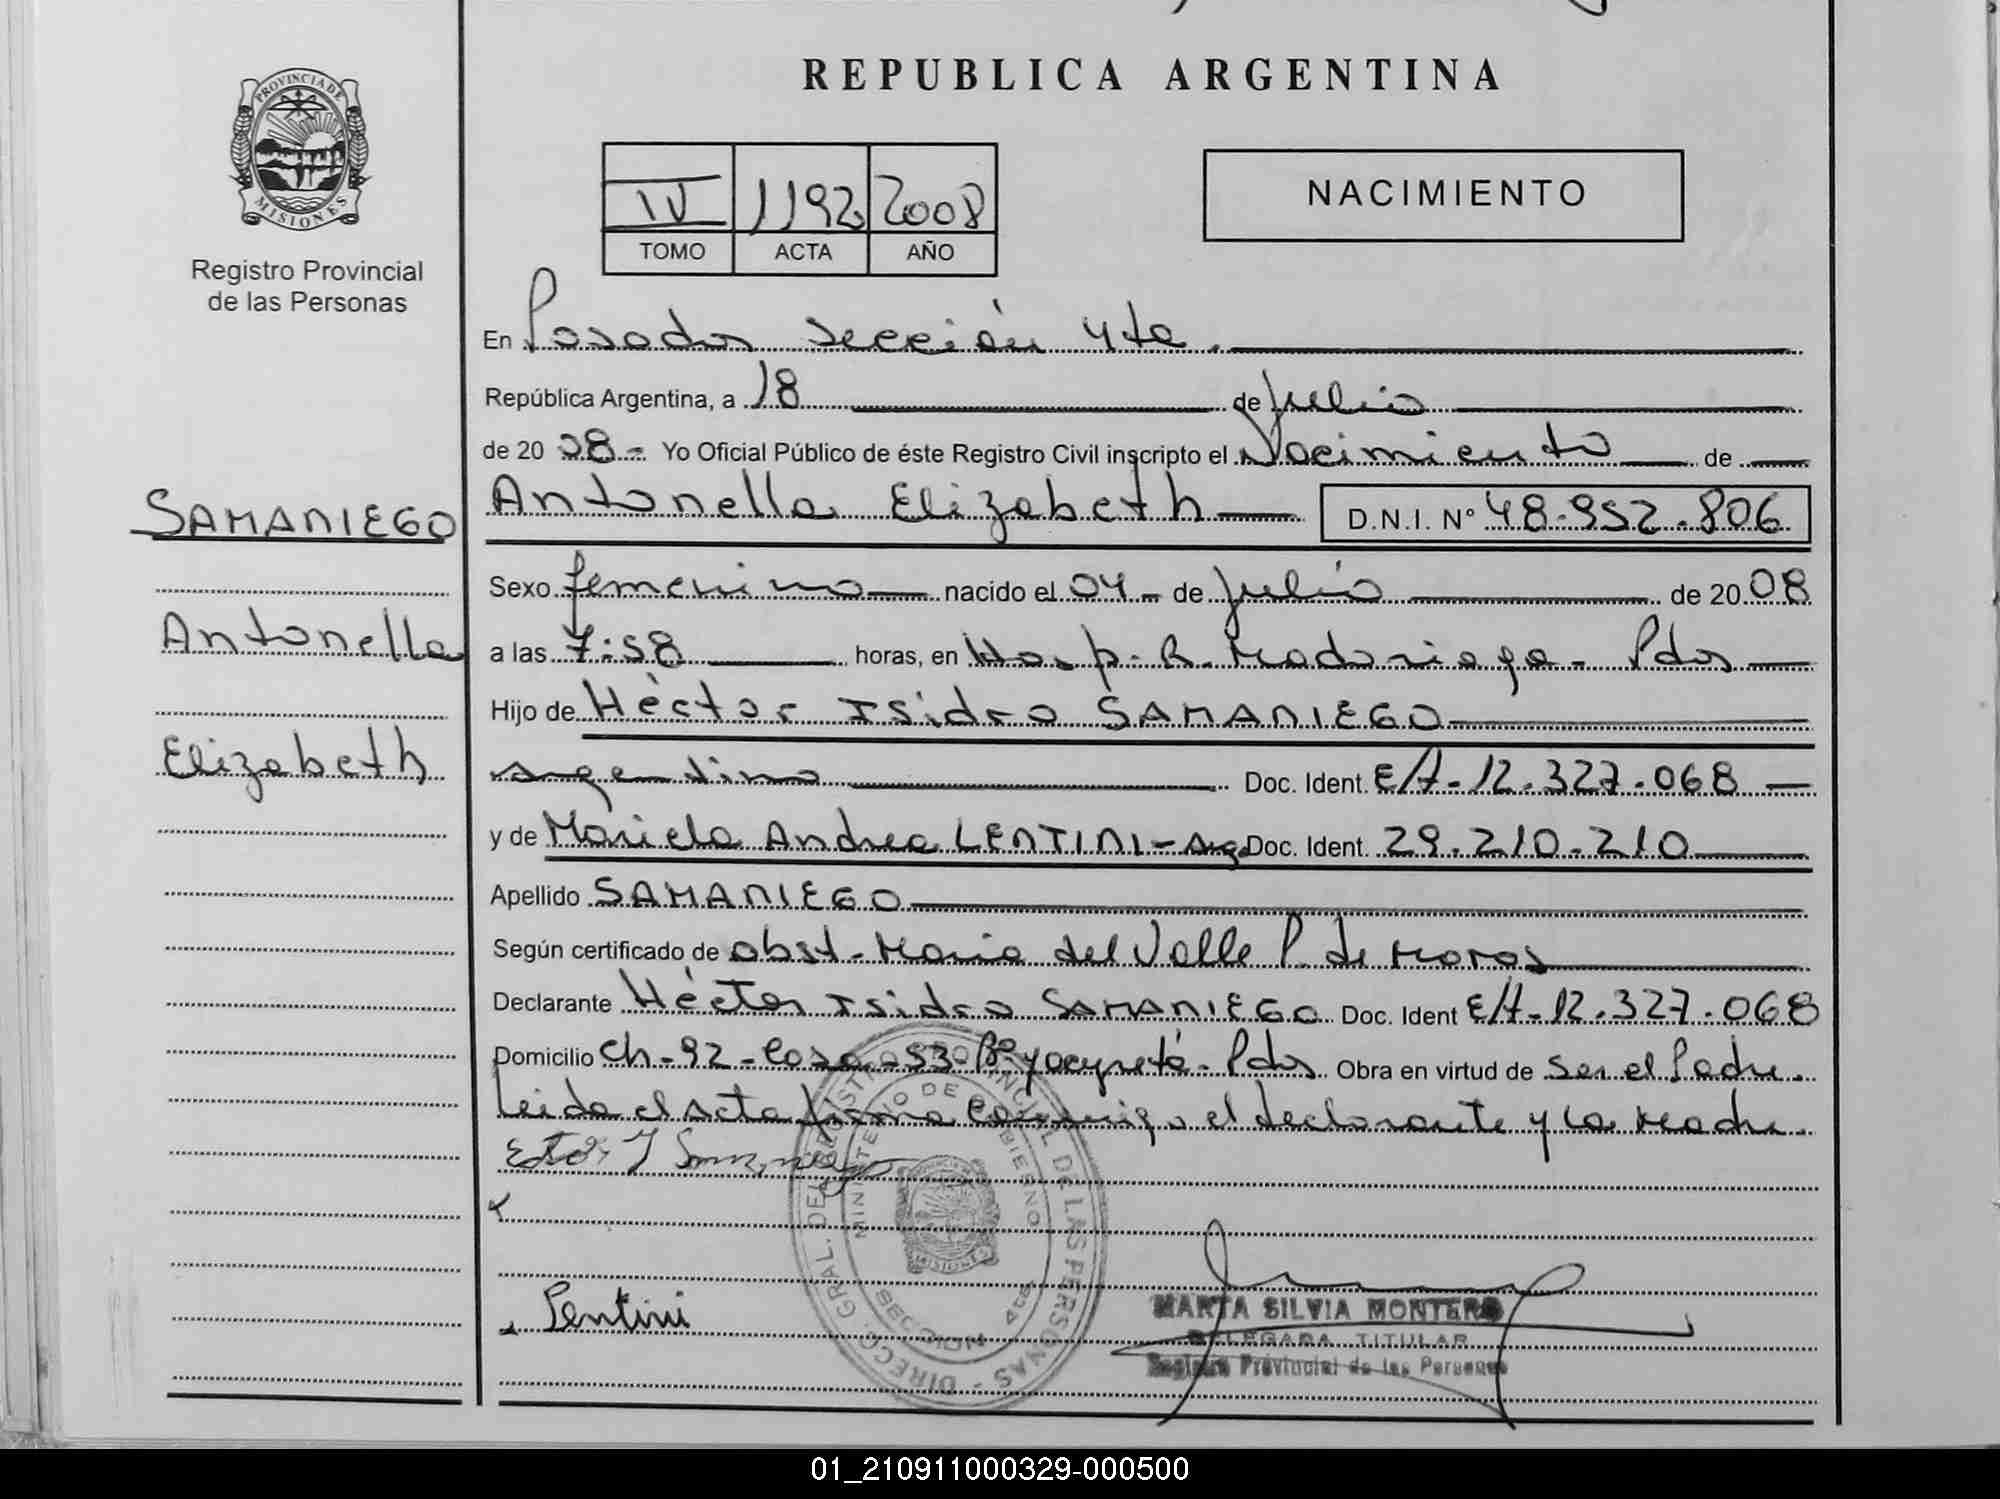 REPUBLICA ARGENTINA
PROVINCIA DE MISIONES
Registro Provincial
de las Personas
IV 1192 2008
TOMO ACTA AÑO
NACIMIENTO
En Posadas sección 4ta.
República Argentina, a 18 de Julio
de 20 08 - Yo Oficial Público de éste Registro Civil inscripto el Nacimiento de
SAMANIEGO
Antonella Elizabeth D.N.I. N° 48.952.806
Sexo femenino nacido el 04 - de Julio de 20 08
Antonella
a las 7:58 horas, en Hosp. R. Madariaga - Pdas
Hijo de Héctor Isidro SAMANIEGO
Elizabeth
argentino Doc. Ident. E/A - 12.327.068
y de Mariela Andrea LENTINI - Arg Doc. Ident. 29.210.210
Apellido SAMANIEGO
Según certificado de obst - Maria del Valle P. de Moras
Declarante Héctor Isidro SAMANIEGO Doc. Ident E/A - 12.327.068
Domicilio Ch - 92 - Casa - 53 B° yacyretá - Pdas Obra en virtud de ser el Padre.
Leida el acta firma conmigo el declarante y la Madre.
DIRECC. GRAL. DEL REGISTRO PROVINCIAL DE LAS PERSONAS
MINISTERIO DE GOBIERNO
SECCION 4ta
MISIONES
Lentini
MARTA SILVIA MONTERO
DELEGADA TITULAR
Registro Provincial de las Personas
01_210911000329-000500